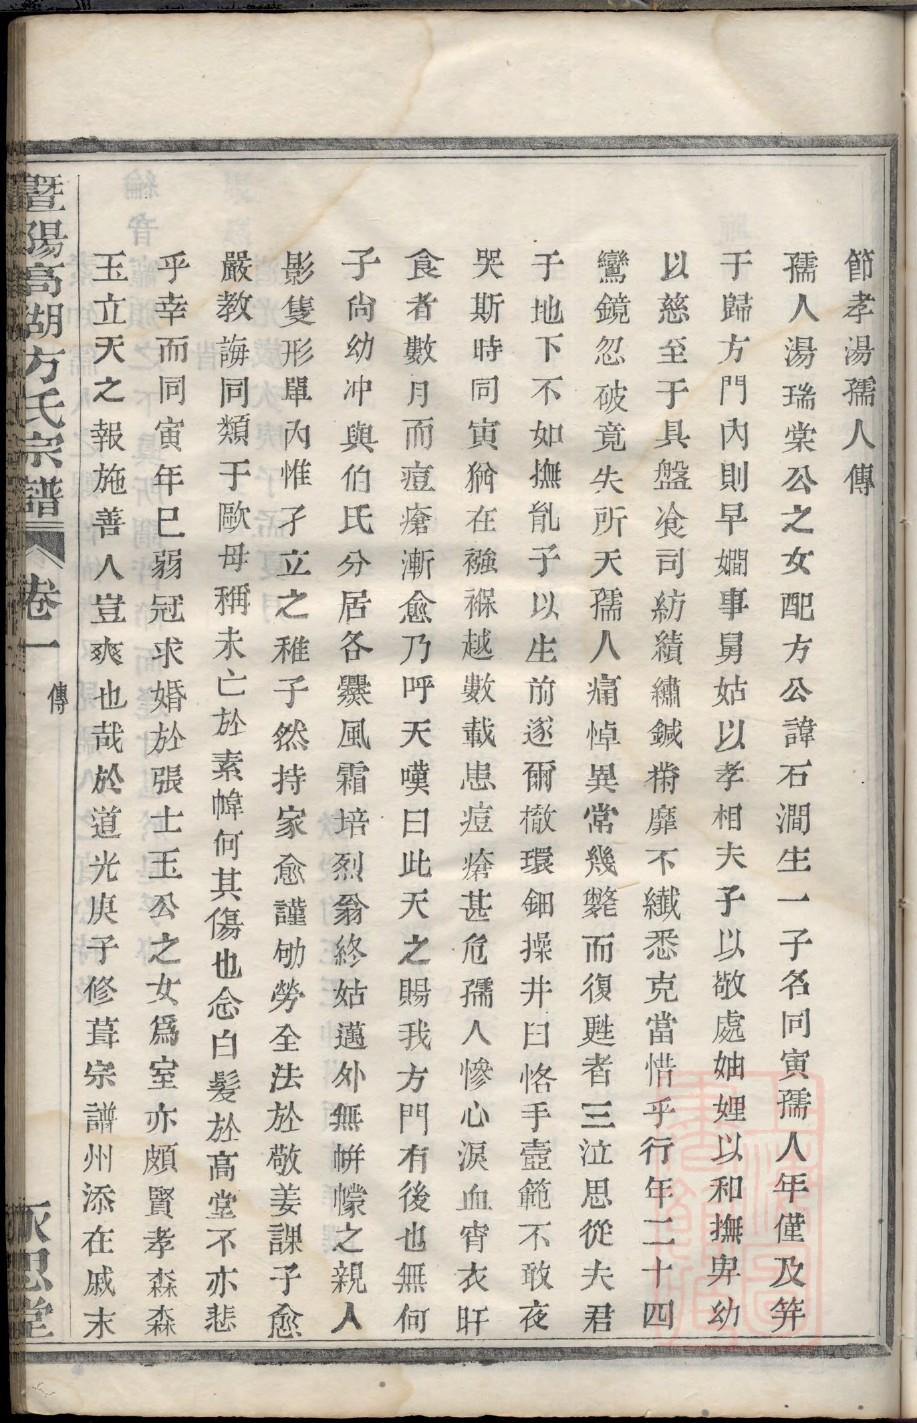 節孝湯孺人傳
孺人湯瑞棠公之女配方公諱石澗生一子名同寅孺人年僅及笄
于歸方門內則早嫺事舅姑以孝相夫子以敬處妯娌以和撫卑幼
以慈至于具盤飡司紡績繡鍼黹靡不纎悉克當惜乎行年二十四
鸞鏡忽破竟失所天孺人痛悼異常幾斃而復甦者三泣思從夫君
于地下不如撫胤子以生前逐爾徹環鈿操井臼恪手壼範不敢夜
哭斯時同寅猶在襁褓越數載患痘瘡甚危孺人慘心淚血宵衣旰
食者數月而痘瘡漸愈乃呼天嘆曰此天之賜我方門有後也無何
子尙幼冲與伯氏分居各爨風霜培烈翁終姑邁外無帡幪之親人
影隻形單內惟孑立之稚子然持家愈謹劬勞全法於敬姜課子愈
嚴教誨同類于歐母稱未亡於素幃何其傷也念白髮於高堂不亦悲
乎幸而同寅年巳弱冠求婚於張士玉公之女爲室亦頗賢孝森森
玉立天之報施善人豈爽也哉於道光庚子修葺宗譜州添在戚末
暨陽高湖方氏宗譜 卷一 傳 永思堂